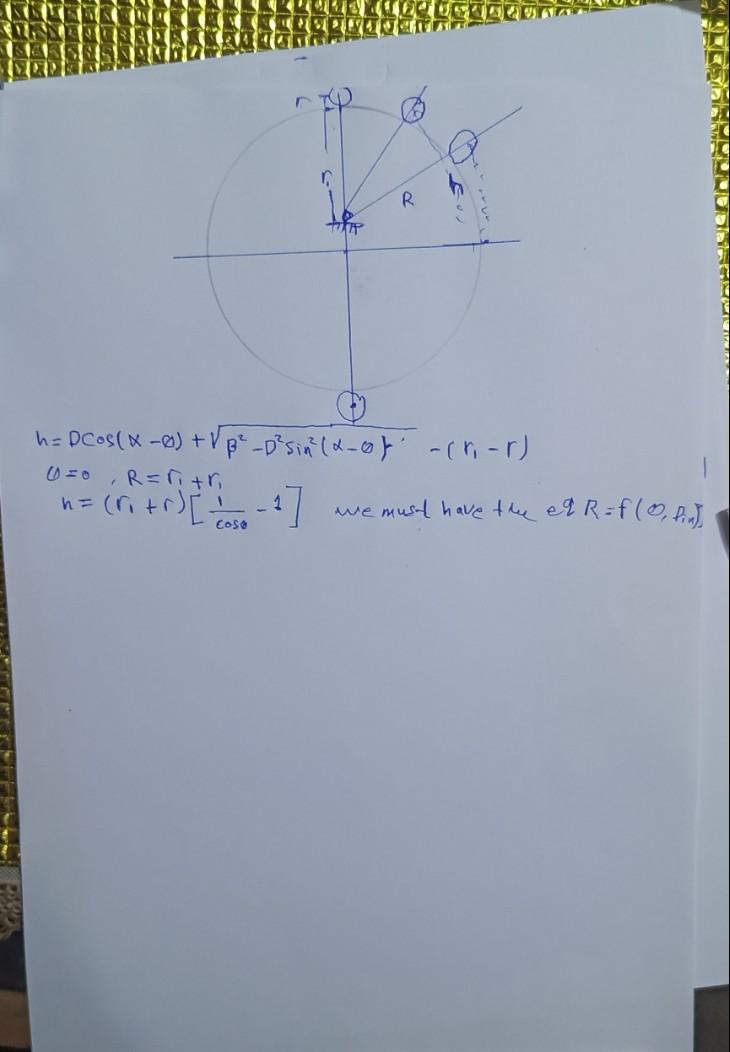 r
r₁
R
h = D cos(α - θ) + √(B² - D² sin²(α - θ)) - (r₁ - r)
θ = 0 , R = r₁ + r₁
h = (r₁ + r) [ 1/cosθ - 1 ] we must have the eq R = f(θ,